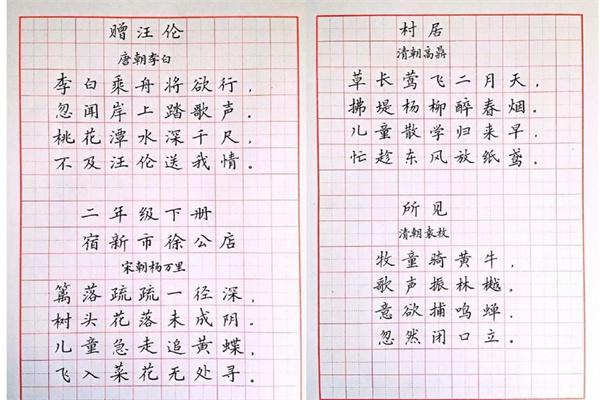 赠汪伦
唐朝李白
李白乘舟将欲行,
忽闻岸上踏歌声.
桃花潭水深千尺,
不及汪伦送我情.
二年级下册
宿新市徐公店
宋朝杨万里
篱落疏疏一径深,
树头花落未成阴.
儿童急走追黄蝶,
飞入菜花无处寻.
村居
清朝高鼎
草长莺飞二月天,
拂堤杨柳醉春烟.
儿童散学归来早,
忙趁东风放纸鸢.
所见
清朝袁枚
牧童骑黄牛,
歌声振林樾.
意欲捕鸣蝉,
忽然闭口立.